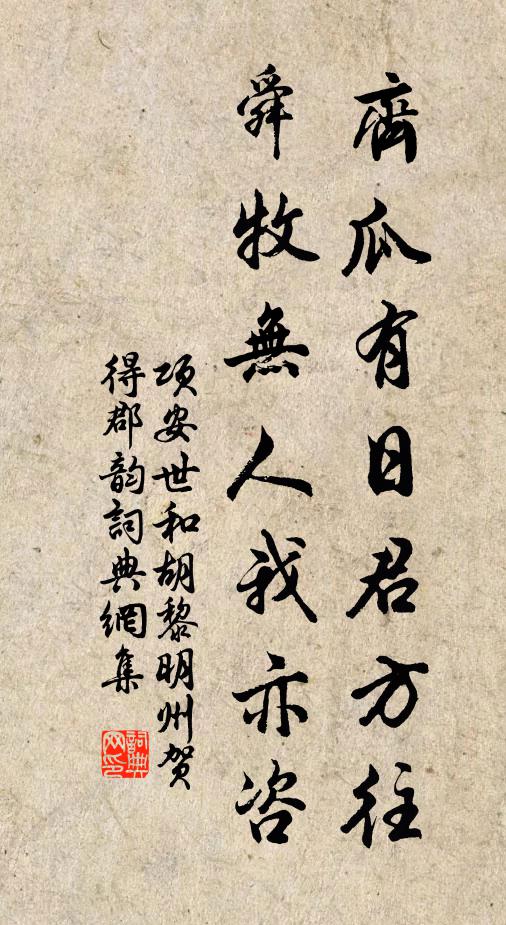 齊瓜有日君方往
舜牧無人我亦咨
项安世和胡黎明州贺
得郡韵詞典網集
詞典
网印